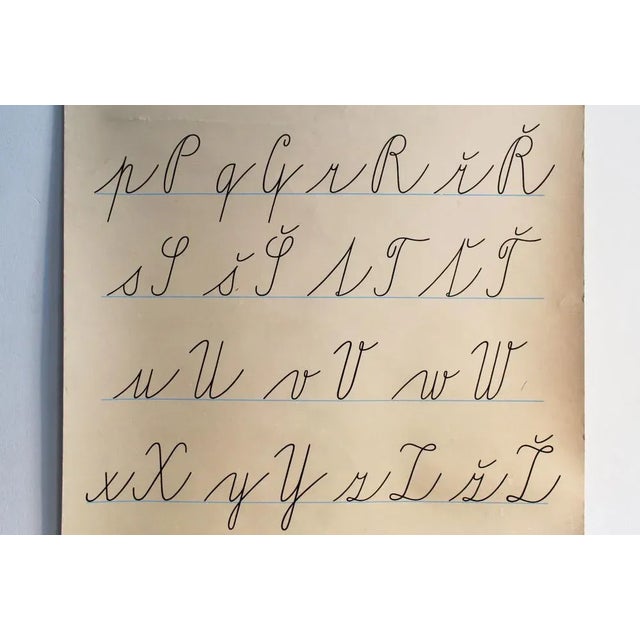 pP qQ rR řŘ
sS šŠ tT ťŤ
uU vV wW
xX yY zZ žŽ